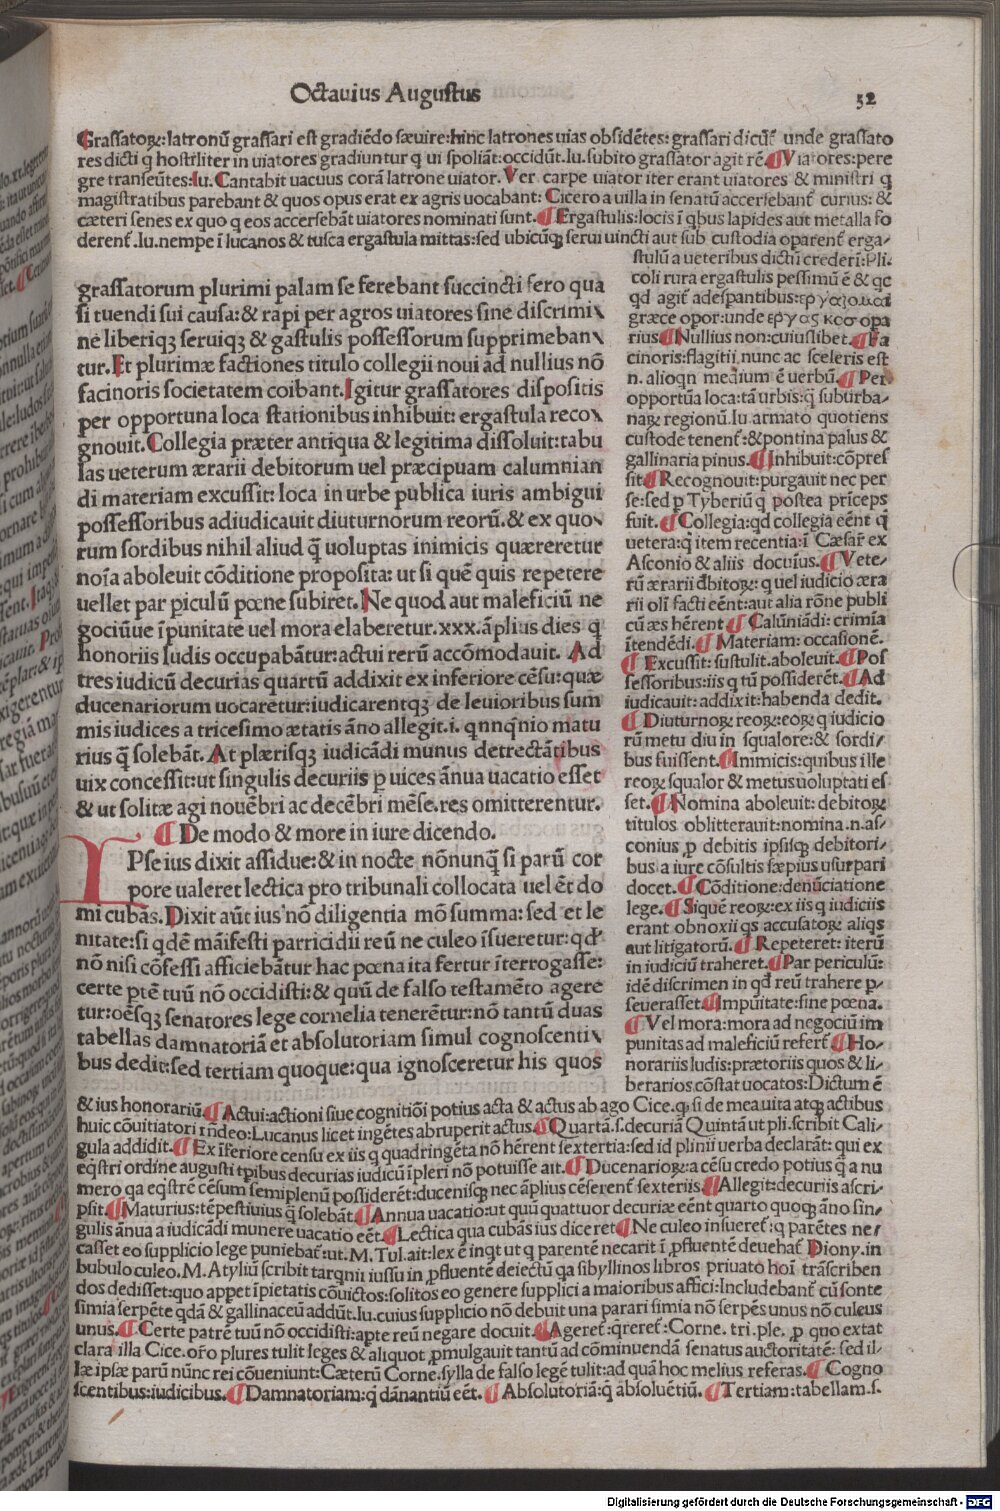 Octauius Augustus
52
Grassatoꝝ: latronū grassari est gradiēdo sæuire: hinc latrones uias obsidētes: grassari dicūt̄ unde grassato
res dicti q hostiliter in uiatores gradiuntur q ui spoliāt: occidūt. Iu. subito grassator agit rē. ¶ Viatores: pere
gre transeūtes: Iu. Cantabit uacuus corā latrone uiator. Ver carpe uiator iter erant uiatores & ministri q
magistratibus parebant & quos opus erat ex agris uocabant: Cicero a uilla in senatū accersebant̄ curius: &
cæteri senes ex quo q eos accersebāt uiatores nominati sunt. ¶ Ergastulis: locis ī qbus lapides aut metalla fo
derent̄. Iu. nempe ī lucanos & tusca ergastula mittas: sed ubicūqꝫ serui uincti aut sub custodia oparent̄ erga⸗
stulū a ueteribus dictū crederī: Pli.
coli rura ergastulis pessimū ē & qc
qd agit̄ a despantibus: εργαζομαι
græce opor: unde εργαςικος opa
rius ¶ Nullius non: cuiuslibet. ¶ Fa
cinoris: flagitii, nunc ac sceleris est
n. alioqn medium ē uerbū. ¶ Per
opportūa loca: tā urbis: q̄ suburba⸗
naꝝ regionū. Iu armato quotiens
custode tenent̄: & pontina palus &
gallinaria pinus. ¶ Inhibuit: cōpres
sit ¶ Recognouit: purgauit nec per
se: sed p Tyberiū q postea prīceps
fuit. ¶ Collegia: qd collegia eēnt q̄
uetera: q̄ item recentia: ī Cæsar̄ ex
Asconio & aliis docuīus. ¶ Vete⸗
rū ærarii dbitoꝝ: q uel iudicio æra
rii oli facti eēnt: aut alia rōne publi
cū æs hērent ¶ Calūniādi: crimia
ītendēdi. ¶ Materiam: occasionē.
¶ Excussit: sustulit. aboleuit. ¶ Pos
sessoribus: iis q tū possiderēt. ¶ Ad
iudicauit: addixit: habenda dedit.
¶ Diuturnoꝝ reoꝝ: eoꝝ q iudicio
rū metu diu in squalore: & sordi⸗
bus fuissent. ¶ Inimicis: quibus ille
reoꝝ squalor & metus uoluptati es
set. ¶ Nomina aboleuit: debitoꝝ
titulos oblitterauit: nomina. n. as⸗
conius p debitis ipsisqꝫ debitori⸗
bus a iure cōsultis sæpius usurpari
docet. ¶ Cōditione: denūciatione
lege. ¶ Siquē reoꝝ: ex iis q iudiciis
erant obnoxii qs accusatoꝝ aliqs
aut litigatorū. ¶ Repeteret: iterū
in iudiciū traheret. ¶ Par periculū:
idē discrimen in qd reū trahere p⸗
seuerasset ¶ Impuītate: sine pœna.
¶ Vel mora: mora ad negociū im
punitas ad maleficiū refert̄ ¶ Ho⸗
norariis ludis: prætoriis quos & li⸗
berarios cōstat uocatos: Dictum ē
grassatorum plurimi palam se ferebant succincti fero qua
si tuendi sui causa: & rapi per agros uiatores sine discrimi⸗
ne liberiqꝫ seruiqꝫ & gastulis possessorum supprimeban⸗
tur. Et plurimæ factiones titulo collegii noui ad nullius nō
facinoris societatem coibant. Igitur grassatores dispositis
per opportuna loca stationibus inhibuit: ergastula reco⸗
gnouit. Collegia præter antiqua & legitima dissoluit: tabu
las ueterum ærarii debitorum uel præcipuam calumnian
di materiam excussit: loca in urbe publica iuris ambigui
possessoribus adiudicauit diuturnorum reorū. & ex quo⸗
rum sordibus nihil aliud q̄ uoluptas inimicis quæreretur
noīa aboleuit cōditione proposita: ut si quē quis repetere
uellet par piculū pœne subiret. Ne quod aut maleficiū ne
gociūue īpunitate uel mora elaberetur. xxx. āplius dies q
honoriis ludis occupabātur: actui rerū accōmodauit. Ad
tres iudicū decurias quartū addixit ex inferiore cēsu: quæ
ducenariorum uocaretur: iudicarentqꝫ de leuioribus sum
mis iudices a tricesimo ætatis āno allegit. i. qnnqnio matu
rius q̄ solebāt. At plærisqꝫ iudicādi munus detrectātibus
uix concessit: ut singulis decuriis p uices ānua uacatio esset
& ut solitæ agi nouēbri ac decēbri mēse. res omitterentur.
¶ De modo & more in iure dicendo.
IPse ius dixit assidue: & in nocte nōnunq̄ si parū cor
pore ualeret lectica pro tribunali collocata uel ēt do
mi cubās. Dixit aūt ius nō diligentia mō summa: sed et le
nitate: si qdē māifesti parricidii reū ne culeo īsueretur: qd
nō nisi cōfessi afficiebātur hac pœna ita fertur īterrogasse:
certe ptē tuū nō occidisti: & quū de falso testamēto agere
tur: oēsqꝫ senatores lege cornelia tenerētur: nō tantū duas
tabellas damnatoriā et absolutoriam simul cognoscenti⸗
bus dedit: sed tertiam quoque: qua ignosceretur his quos
& ius honorariū ¶ Actui: actioni siue cognitiōi potius acta & actus ab ago Cice. q̄ si de mea uita atqꝫ actibus
huic cōuitiatori rn̄deo: Lucanus licet ingētes abruperit actus. ¶ Quartā. s. decuriā Quintā ut pli. scribit Cali⸗
gula addidit. ¶ Ex īferiore censu ex iis q quadringēta nō hērent sextertia: sed id plinii uerba declarāt: qui ex
eqstri ordine augusti tpibus decurias iudicū īpleri nō potuisse ait. ¶ Ducenarioꝝ: a cēsu credo potius q̄ a nu
mero qa eqstrē cēsum semiplenū possiderēt: ducenisqꝫ nec āplius cēserent̄ sexteriis. ¶ Allegit: decuriis ascri⸗
psit. ¶ Maturius: tēpestiuius q̄ solebāt. ¶ Annua uacatio: ut quū quattuor decuriæ eēnt quarto quoqꝫ āno sin⸗
gulis ānua a iudicādi munere uacatio eēt. ¶ Lectica qua cubās ius diceret ¶ Ne culeo insueret̄: q parētes ne⸗
casset eo supplicio lege puniebat̄: ut. M. Tul. ait: lex ē inqt ut q parentē necarit ī pfluentē deuehat̄ Diony. in
bubulo culeo. M. Atyliū scribit tarqnii iussu in pfluentē deiectū qa sibyllinos libros priuato hoī trāscriben
dos dedisset: quo appet īpietatis cōuictos: solitos eo genere supplici a maioribus affici: Includebant̄ cū sonte
simia serpēte qdā & gallinaceū addūt. Iu. cuius supplicio nō debuit una parari simia nō serpēs unus nō culeus
unus. ¶ Certe patrē tuū nō occidisti: apte reū negare docuit. ¶ Ageret̄: qreret̄: Corne. tri. ple. p quo extat
clara illa Cice. ofo plures tulit leges & aliquot pmulgauit tantū ad cōminuendā senatus auctoritatē: sed il⸗
læ ipsæ parū nūnc rei cōueniunt: Cæterū Corne. sylla de falso legē tulit: ad quā hoc melius referas. ¶ Cogno
scentibus: iudicibus. ¶ Damnatoriam: q̄ dānantiū eēt. ¶ Absolutoriā: q̄ absoluētiū. ¶ Tertiam: tabellam. s.
Digitalisierung gefördert durch die Deutsche Forschungsgemeinschaft - DFG